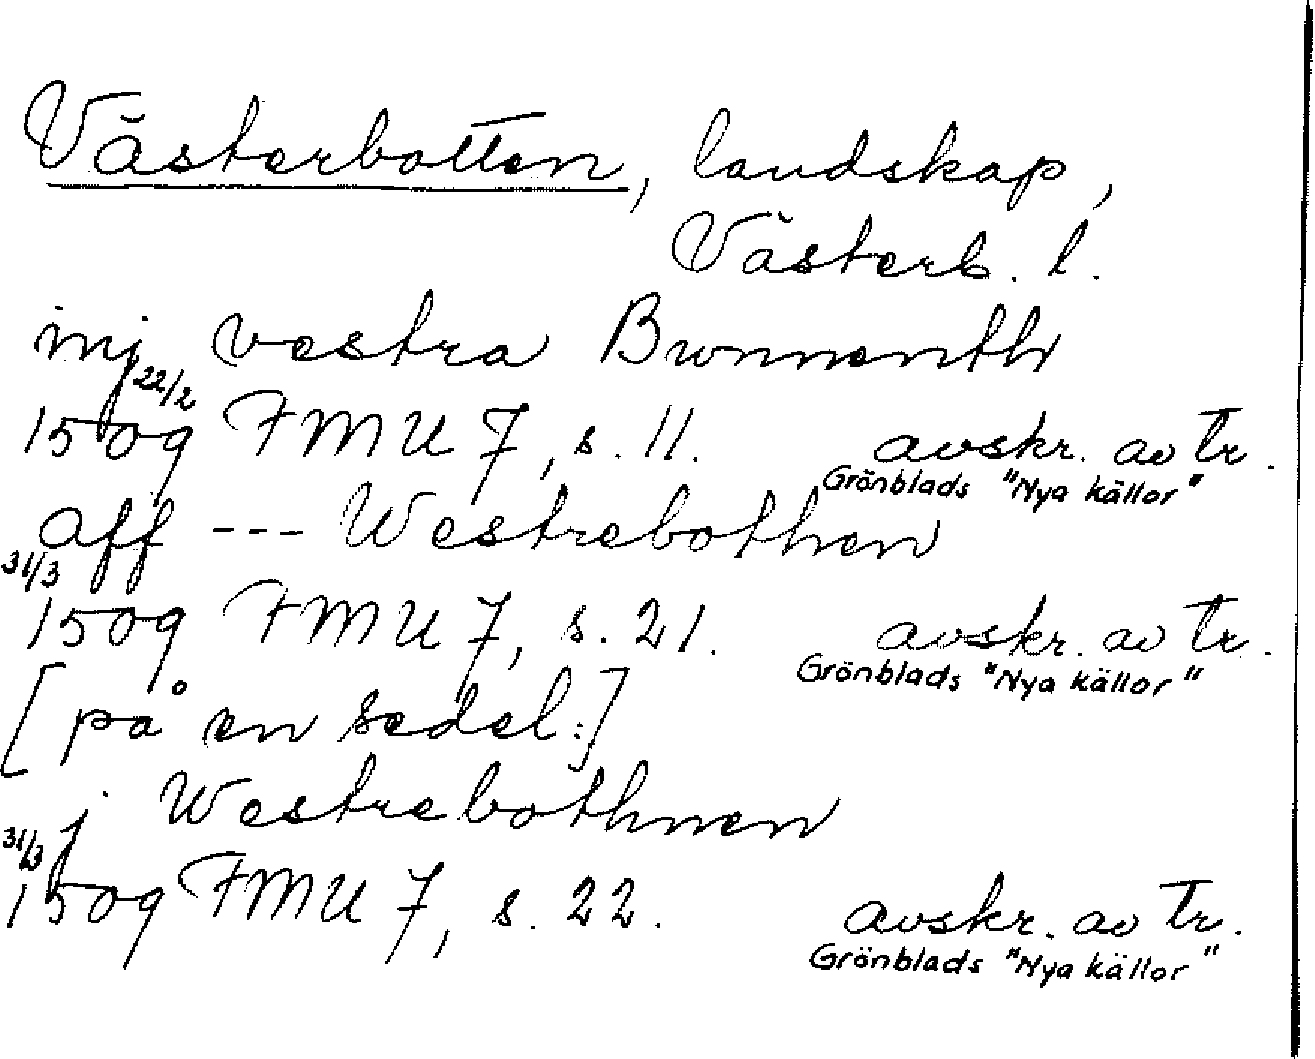 Västerbotten, landskap,
Västerb. l.
inj vestra Bwnnenth
22/2
1509 FMU 7, s. 11. avskr. av tr.
Grönblads "Nya källor"
aff --- Westrebothen
31/3
1509 FMU 7, s. 21. avskr. av tr.
Grönblads "Nya källor"
[på en sedel:]
j Westrebothnen
31/3
1509 FMU 7, s. 22. avskr. av tr.
Grönblads "Nya källor"